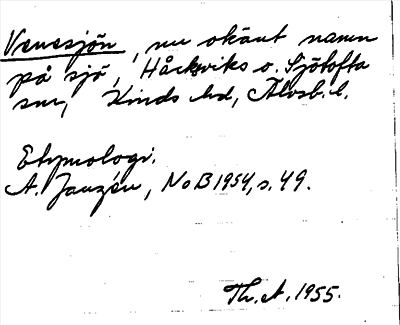 Venesjön, nu okänt namn
på sjö, Håcksviks o. Sjötofta
snr, Kinds hd, Älvsb. l.
Etymologi.
A. Janzén, NoB 1954, s. 49.
Th. A. 1955.